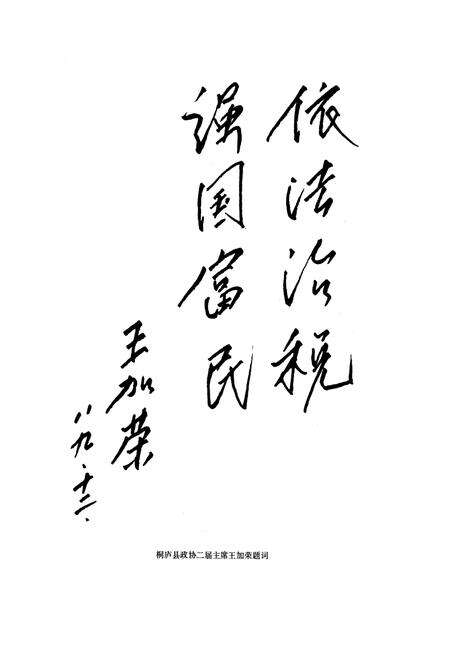 依法治税
强国富民
王加荣
八九.十二.
桐庐县政协二届主席王加荣题词